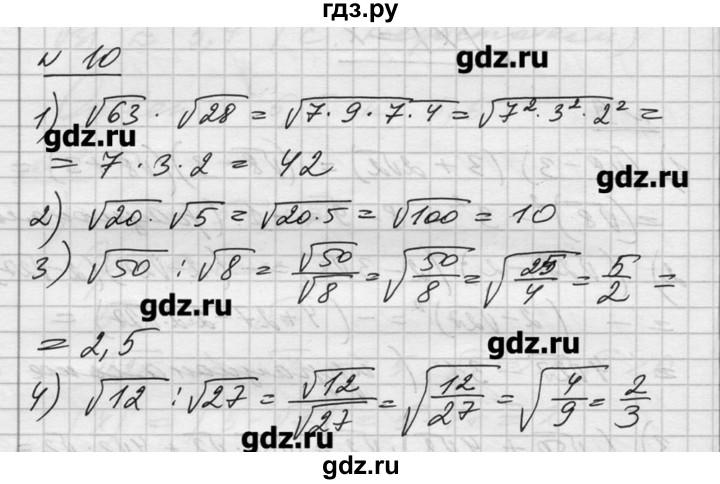 гдз.ру
gdz.ru
№ 10
1) √63 · √28 = √7·9·7·4 = √7²·3²·2² =
gdz.ru
= 7·3·2 = 42
gdz.ru
2) √20 · √5 = √20·5 = √100 = 10
3) √50 : √8 = √50/√8 = √50/8 = √25/4 = 5/2 =
gdz.ru
= 2,5
gdz.ru
4) √12 : √27 = √12/√27 = √12/27 = √4/9 = 2/3
gdz.ru
gdz.ru